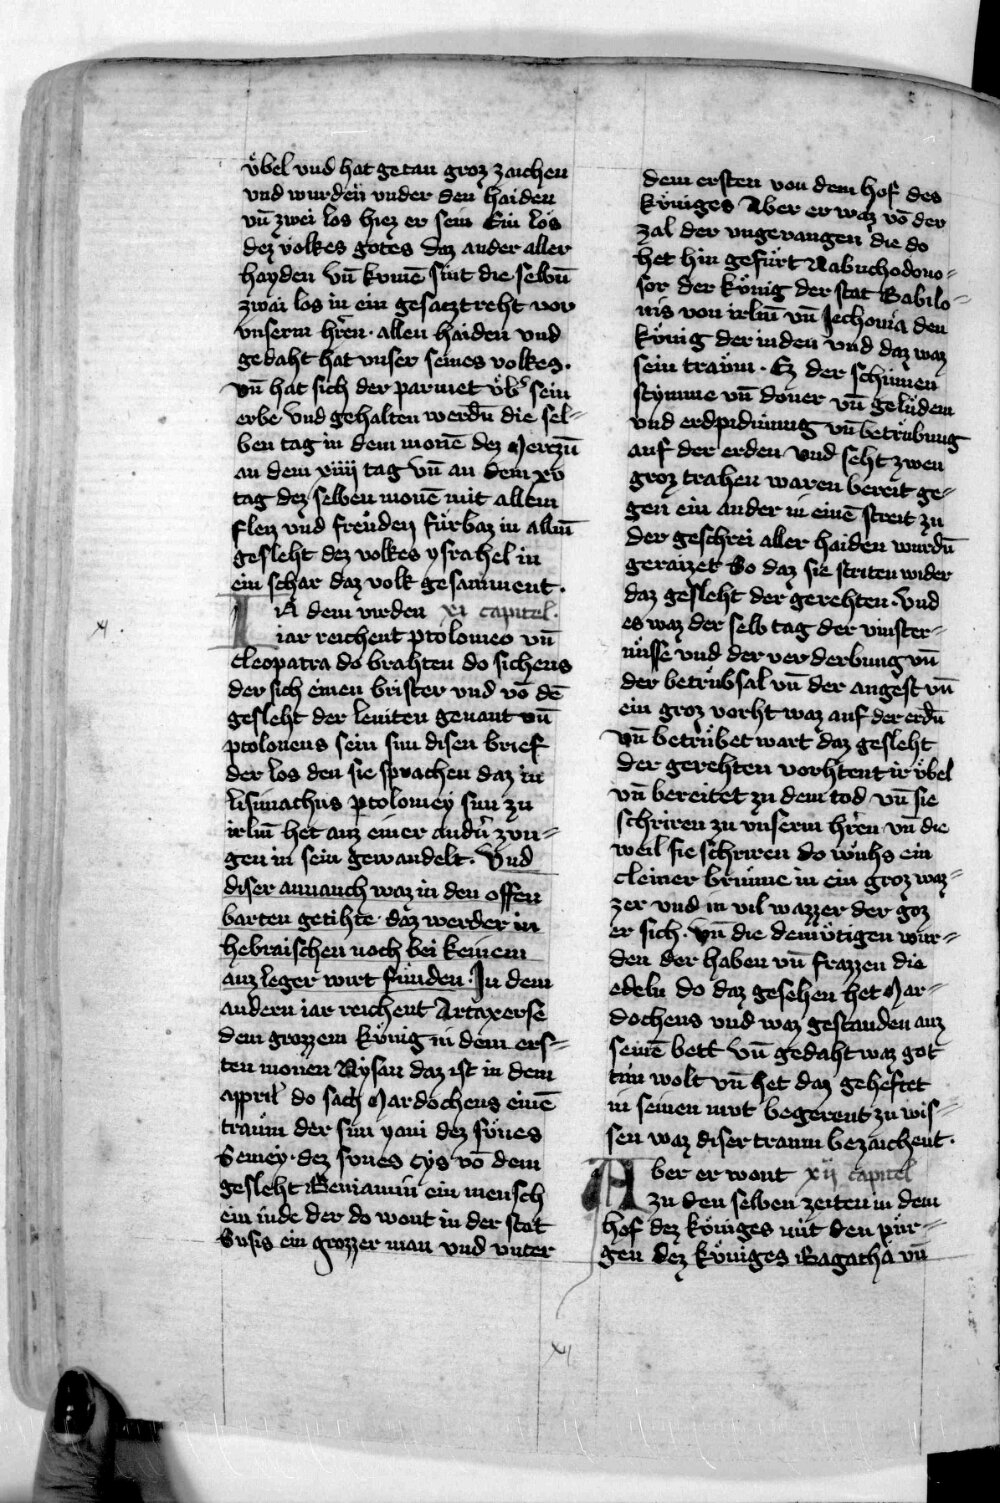 vͤbel vnd hat getan groz zaichen
vnd wurden vnder den haiden
vn̄ zwei los hiez er sein Ein los
dez volkes gotes daz ander aller
hayden Vn̄ kvmē sint die selbn̄
zwai los in ein gesaczt reht vor
vnserm hr̄en · allen haiden vnd
gedaht hat vnser seines volkes ·
vn̄ hat sich der parmet vͤb͛ sein
erbe Vnd gehalten werdn̄ die sel-
ben tag in dem monē dez Merczn̄
an dem xiiii tag Vn̄ an dem xv
tag dez selben monē mit allem
fleiz vnd freuden fuͤrbaz in alln̄
gesleht dez volkes ysrahel in
ein schar daz volk gesamment ·
In dem virden xi capitel ·
iar reichent ptolomeo vn̄
cleopatra do brahten dosicheus
der sich einen brister vnd vō dē
gesleht der leuiten genant vn̄
ptolomeus sein sun disen brief
der los den sie sprachen daz in
lisimachus ptolomey sun zu
irlm̄ het auz einer andn̄ zvn-
gen in sein gewandelt · Vnd
diser anuanch waz in den offen
barten getihte daz weder in
hebraischen noch bei keinem
auz leger wirt funden · In dem
andern iar reichent Artaxerse
dem grozzem kuͤnig in dem ers-
ten monen Nysan daz ist in dem
appril do sach Mardocheus einē
traum der sun yairi dez suͤnes
Semey · dez suͤnes cys vō dem
gesleht Beniamin ein mensch
ein iude der do wont in der stat
Susis ein grozzer man vnd vnter
dem ersten von dem hof des
kuͤniges Aber er waz vō der
zal der vngevangen die do
het hin gefuͤrt Nabuchodono-
sor der kuͤnig der stat Babilo-
nis von irlm̄ vn̄ Jechonia den
kuͤnig der iuden vnd daz waz
sein traum · Ez der schinnen
stymme vn̄ doner vn̄ geluͤdem
vnd erdpidinung vn̄ betruͤbung
auf der erden vnd seht zwen
groz trahen waren bereit ge-
gen ein ander in einē streit zu
der geschrei aller haiden wurdn̄
geraizet So daz sie striten wider
daz gesleht der gerehten · Vnd
es waz der selb tag der vinster-
nuͤsse vnd der ver derbung vn̄
der betruͤbsal vn̄ der angest vn̄
ein groz vorht waz auf der erdn̄
vn̄ betruͤbet wart daz gesleht
der gerehten vorhtent ir vͤbel
vn̄ bereitet zu dem tod vn̄ sie
schriren zu vnserm hr̄en vn̄ die
weil sie schriren do wuͤhs ein
cleiner brunne in ein groz waz-
zer vnd in vil wazzer der goz
er sich · vn̄ die demuͤtigen wur-
den der haben vn̄ frazzen die
edeln do daz gesehen het Mar-
docheus vnd waz gestanden auz
seinē bett Vn̄ gedaht waz got
tun wolt vn̄ het daz geheftet
in seinen mvt begerent zu wis-
sen waz diser traum bezaichent ·
Aber er wont xii capitel
zu den selben zeiten in dem
hof dez kuͤniges mit den puͤr-
gen dez kuͤniges Bagatha vn̄